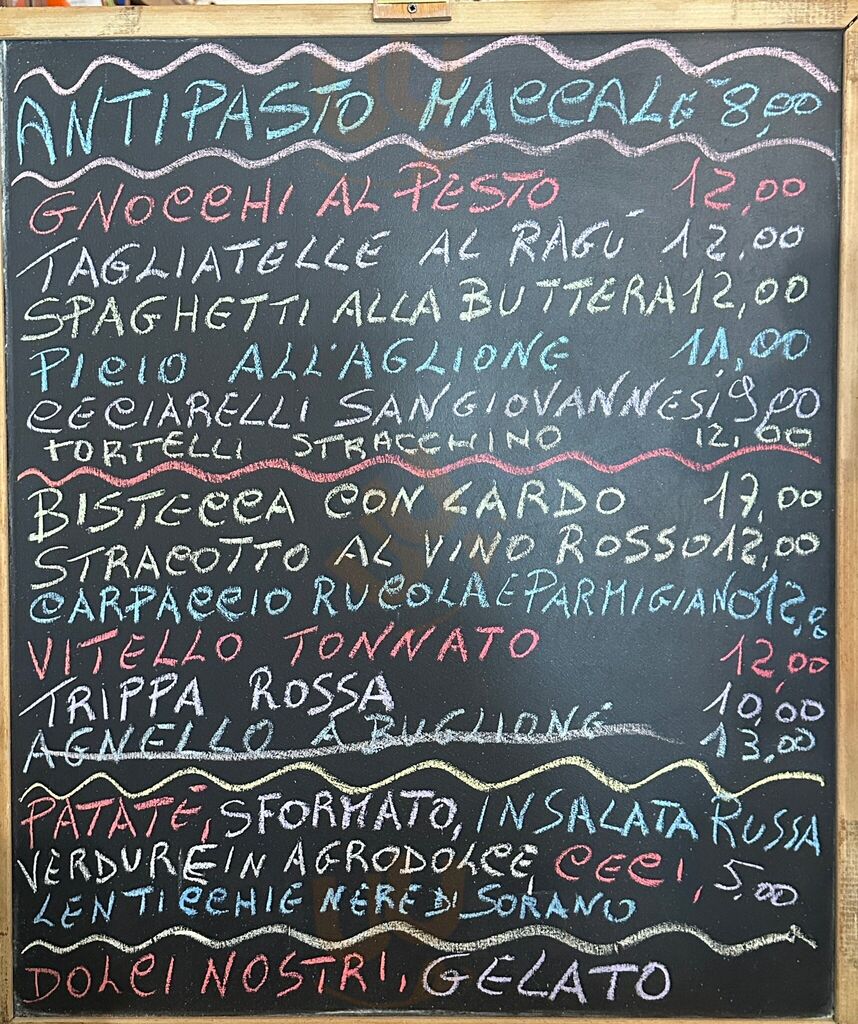 ANTIPASTO MACCALE 8,00
GNOCCHI AL PESTO 12,00
TAGLIATELLE AL RAGÚ 12,00
SPAGHETTI ALLA BUTTERA 12,00
PICIO ALL'AGLIONE 11,00
CECIARELLI SANGIOVANNESI 9,00
TORTELLI STRACCHINO 12,00
BISTECCA CON LARDO 17,00
STRACOTTO AL VINO ROSSO 12,00
CARPACCIO RUCOLA E PARMIGIANO 12,00
VITELLO TONNATO 12,00
TRIPPA ROSSA 10,00
AGNELLO A BUGLIONE 13,00
PATATE, SFORMATO, INSALATA RUSSA
VERDURE IN AGRODOLCE, CECI, 5,00
LENTICCHIE NERE DI SORANO
DOLCI NOSTRI, GELATO